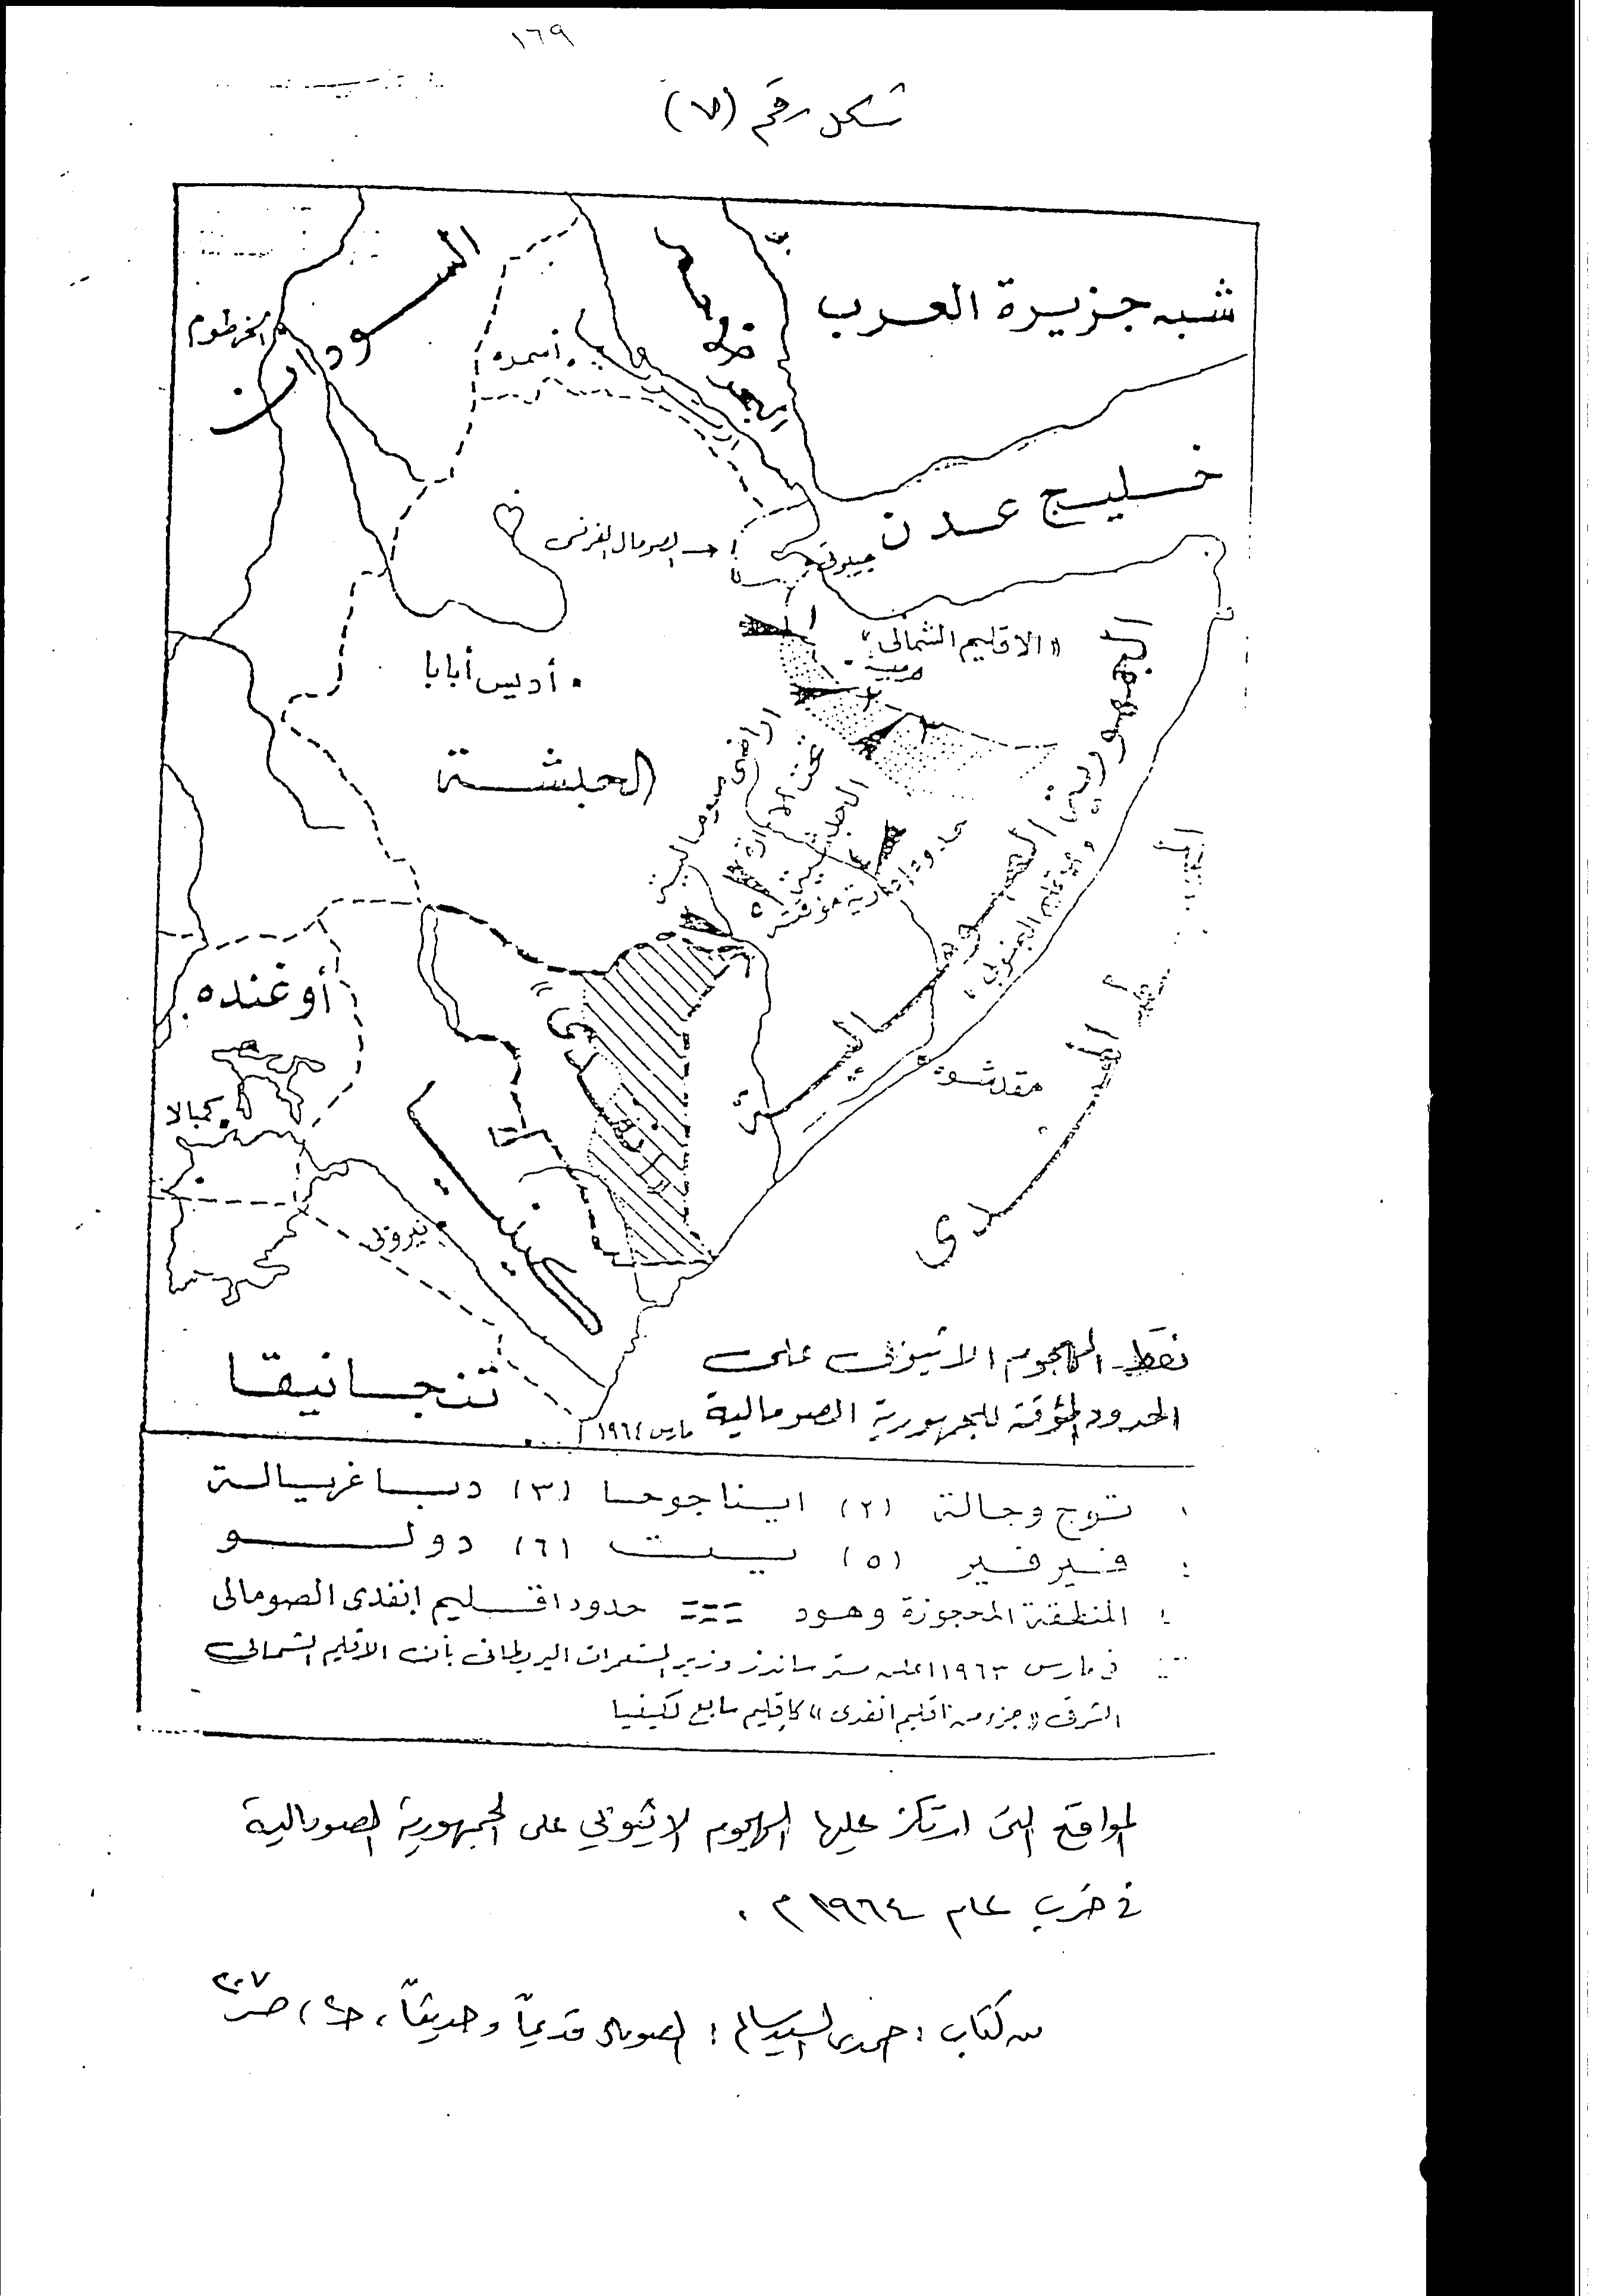 ١٦٩
شكل رقم (٧)
شبه جزيرة العرب
السودان
الخرطوم
أسمره
البحر
خليج عدن
الصومال الفرنسى
جيبوتى
«الاقليم الشمالى»
أديس أبابا
الحبشة
اراضى صومالية
تحت الادارة
الحبشية
حدود إدارية مؤقتة
الجمهورية الصومالية
والاقليم الجنوبى
المحيط الهندى
مقدشو
أوغنده
كمبالا
كينيا
نيروبى
تنجانيقا
نقط الهجوم الاثيوبى على
الحدود المؤقتة للجمهورية الصومالية مارس ١٩٦٤
: توج وجالة (٢) ايناجوحا (٣) دباغريالة
: فيرفير (٥) يت (٦) دولو
: المنطقة المحجوزة وهود === حدود اقليم انفدى الصومالى
فى مارس ١٩٦٣ اعلن مستر ساندز وزير المستعمرات البريطانى بأن الاقليم الشمالى
الشرقى «جزء من اقليم انفدى» كاقليم سابع لكينيا
المواقع التى ارتكز عليها الهجوم الاثيوبي على الجمهورية الصومالية
فى حرب عام ١٩٦٤م.
من كتاب : حمدى السيد سالم : الصومال قديماً وحديثاً، ج٢، ص ٢٠٧